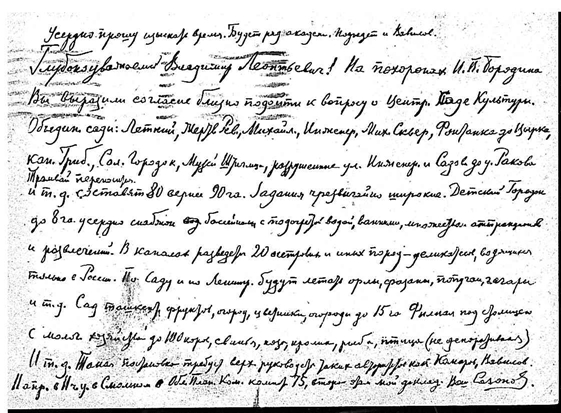 Усердно прошу изыскать время. Будет рад академ. Подъедет и Вавилов.
Глубокоуважаемый Владимир Леонтьевич! На похоронах И.П. Бородина
Вы выразили согласие близко подойти к вопросу о Центр. Саде Культуры.
Объедин. сади: Летний, Жертв Рев, Михайл., Инженер, Мих Сквер, Фонтанка до Цирка,
кан. Гриб., Сол. Городок, Музей Штиглиц, разрушенные ул. Инженер. и Садов до у. Ракова
Трамвай переносится.
и т.д. составят 80 вернее 90 га. Задания чрезвычайно широкие. Детский Городок
до 8 га усердно снабжен бассейном с подогретой водой, ваннами, множеством аттракционов
и развлечений. В каналах разведете 20 осетровых и иных пород - деликатесов, водящихся
только в России. По Саду и по Ленингр. будут летать орлы, фазаны, попугаи, гагары
и т.д. Сад фруктов, огород, цветники, огороды до 15 га Филиал под столицей
с молоч. хозяйств до 100 коров, свиньи, козы, кролики, рыба, птица (не декоративная)
И т.д. Такая постановка требует верх. руководства таких авторитетов как Комаров, Вавилов.
Напр. в Смольном Обл План. Ком. комнат 75, мой доклад. Ваш Сазонов.